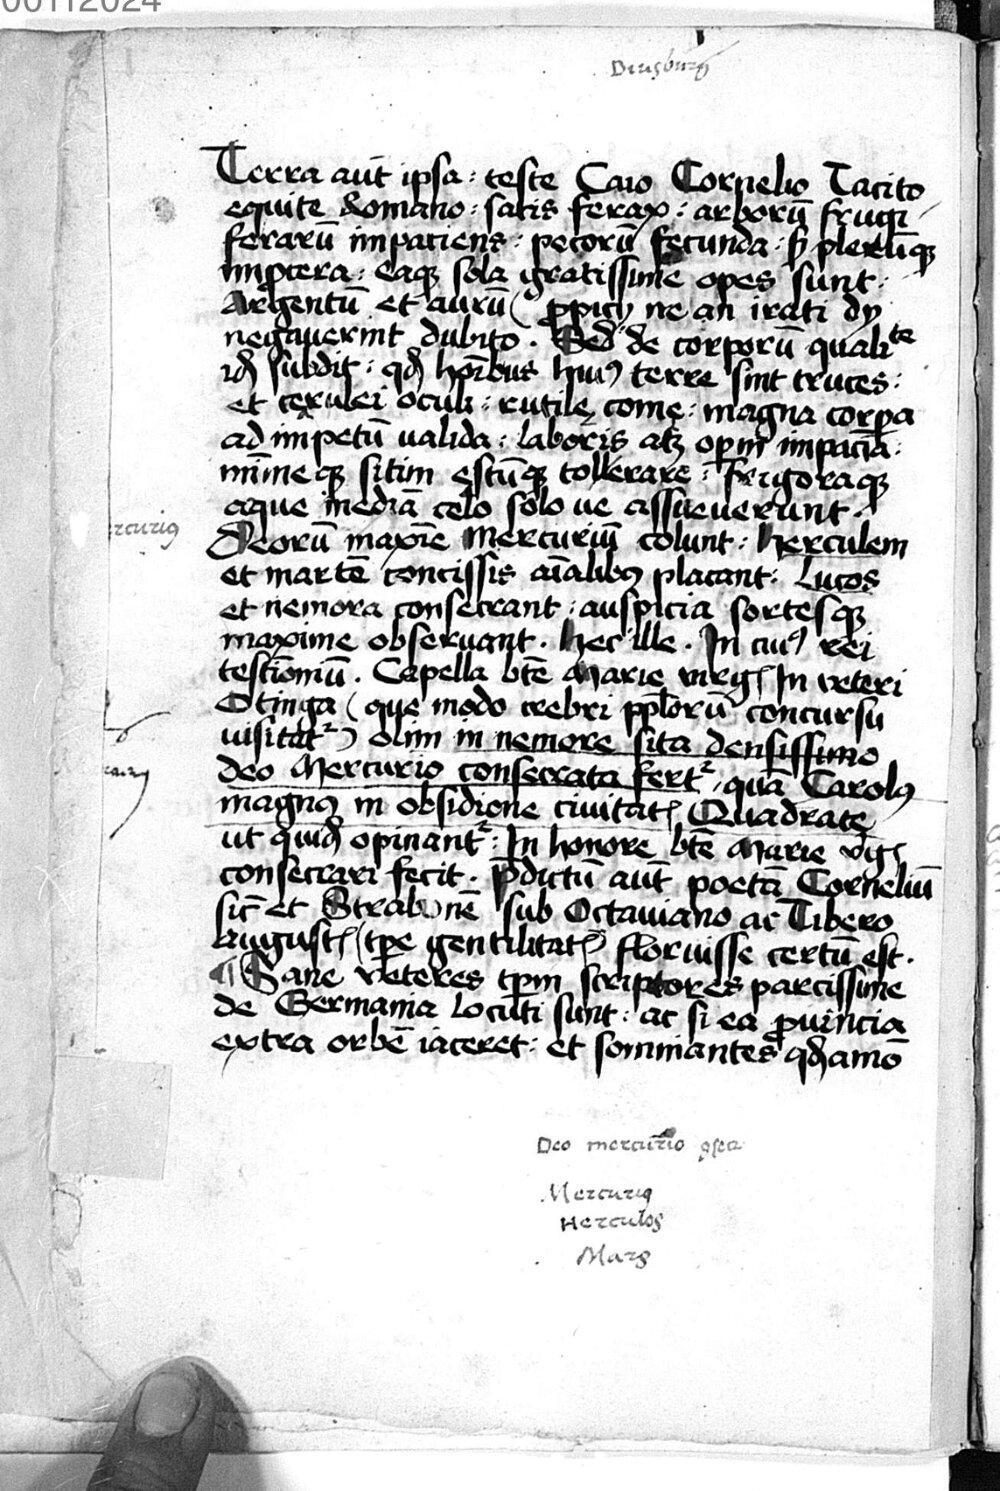 00112024
Duisburg
Terra aūt ipsa : teste Caio Cornelio Tacito
equite Romano : satis ferax : arborū frugi
ferarū impatiens : pecorū fecunda : sꝫ plerūqꝫ
improcera : eaqꝫ sola gratissime opes sunt :
Argentū et aurū ( ꝓpicij ne an irati dij
negauerint dubito . Sed de corporū qualitate
idē subdit : qđ hoībus huiꝰ terre sint truces :
et cerulei oculi : rutilę comę : magna corpa
ad impetū ualida : laboris atqꝫ oꝑm impaciā :
mīmeqꝫ sitim estūqꝫ tollerare : Frigoraqꝫ
celo solo ue assueuerunt .
Deorū maxīe Mercuriū colunt : Herculem
et martē concissis aīalibꝰ placant : Lucos
et nemora consecrant : auspicia sortesqꝫ
maxime obseruant . Hec ille . In cuiꝰ rei
testīoniū . Capella btē Marie virgͥs In veteri
Otinga ( que modo crebri ppl̄orū concursu
uisitatᷣ ) olim in nemore sita densissimo
deo Mercurio consecrata fertᷣ , quā Carolꝰ
magnꝰ in obsidione ciuitatꝭ Quadratę
ut quidā opinantᷣ : In honore btē Marie vgͥs
consecrari fecit . p̄dictū aūt poetā Corneliū
sic̄ et Strabonē sub Octauiano ac Tiberio
Augustꝭ ( tꝑe gentilitatꝭ ) floruisse certū est .
¶ Sane veteres tꝑm scriptores parcissime
de Germania locuti sunt : ac si ea ꝓuincia
extra orbē iaceret : et somniantes qđāmō
Deo mercurio ꝯsec̄
Mercuriꝰ
Hercules
Mars